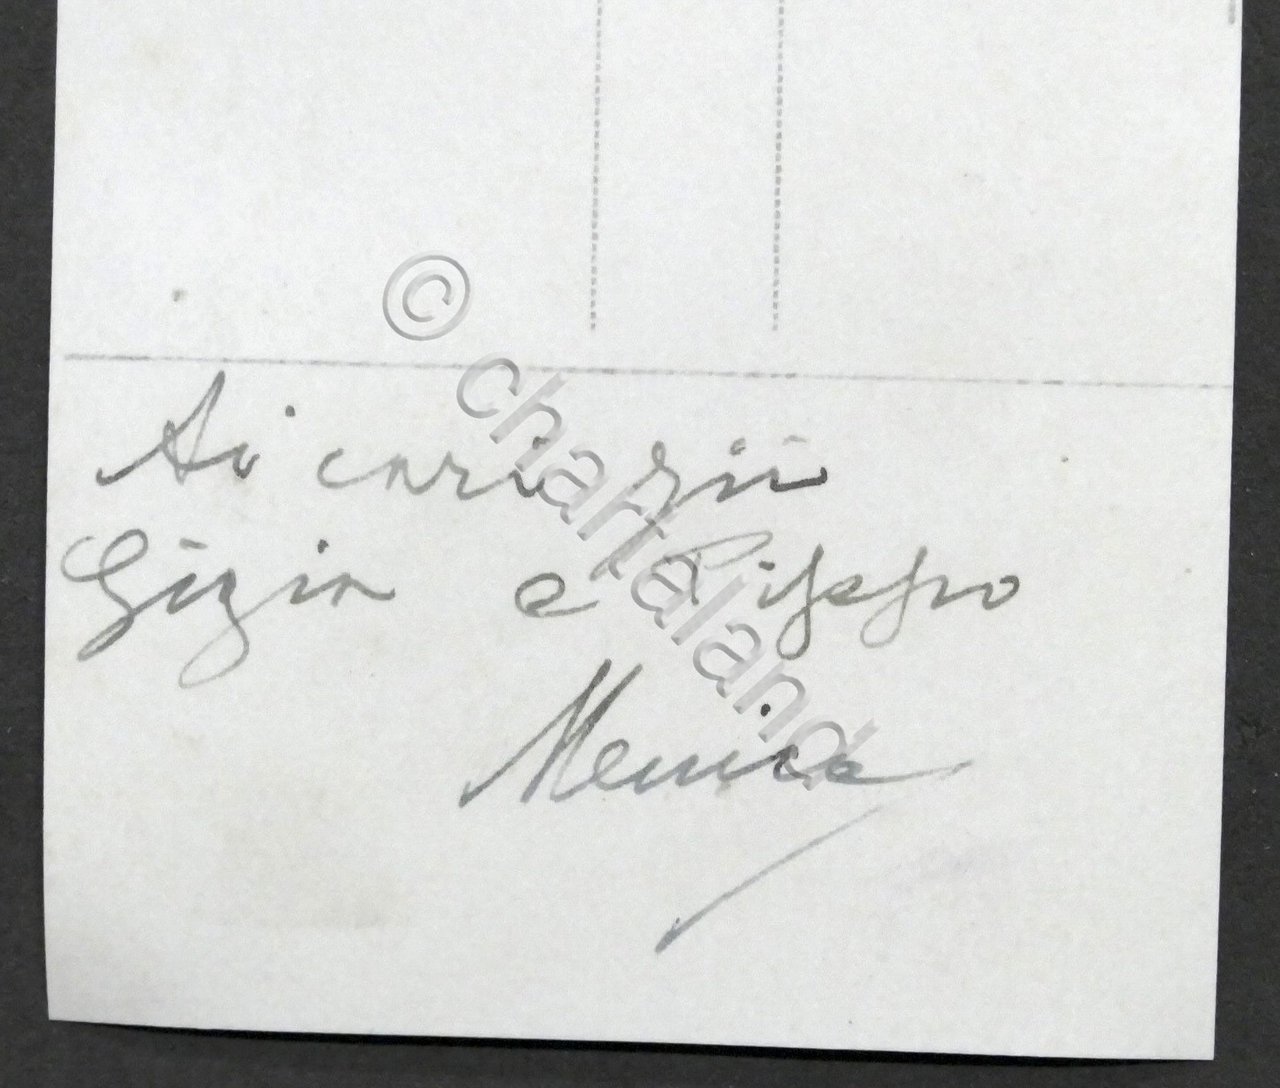 Ai cari zii
Gizia e Pippo
Menica
© chartaland